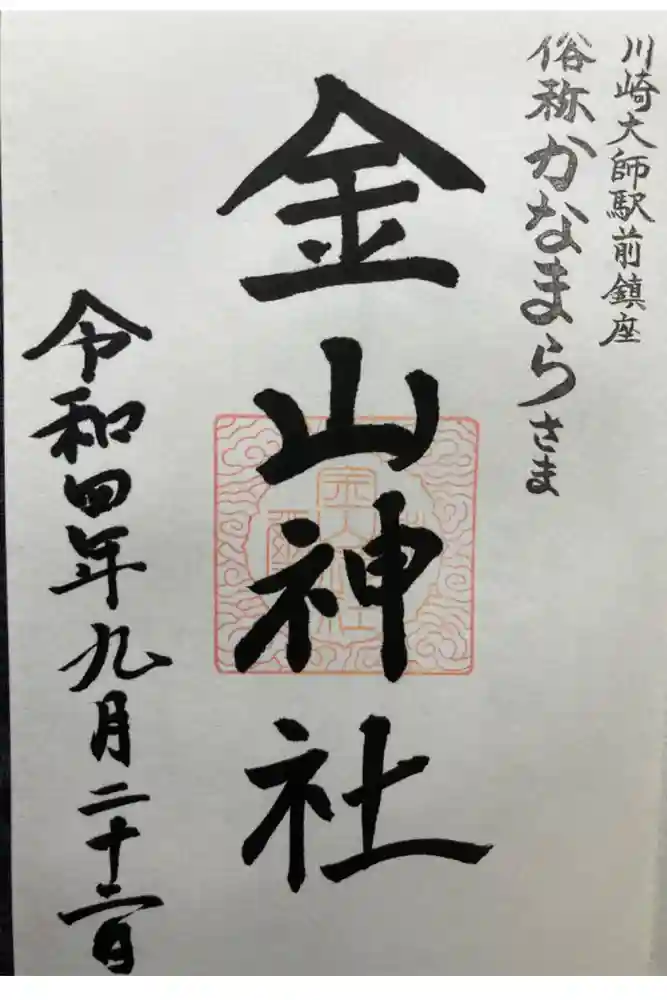 川崎大師駅前鎮座
俗称かなまらさま
金山神社
令和四年九月二十二日